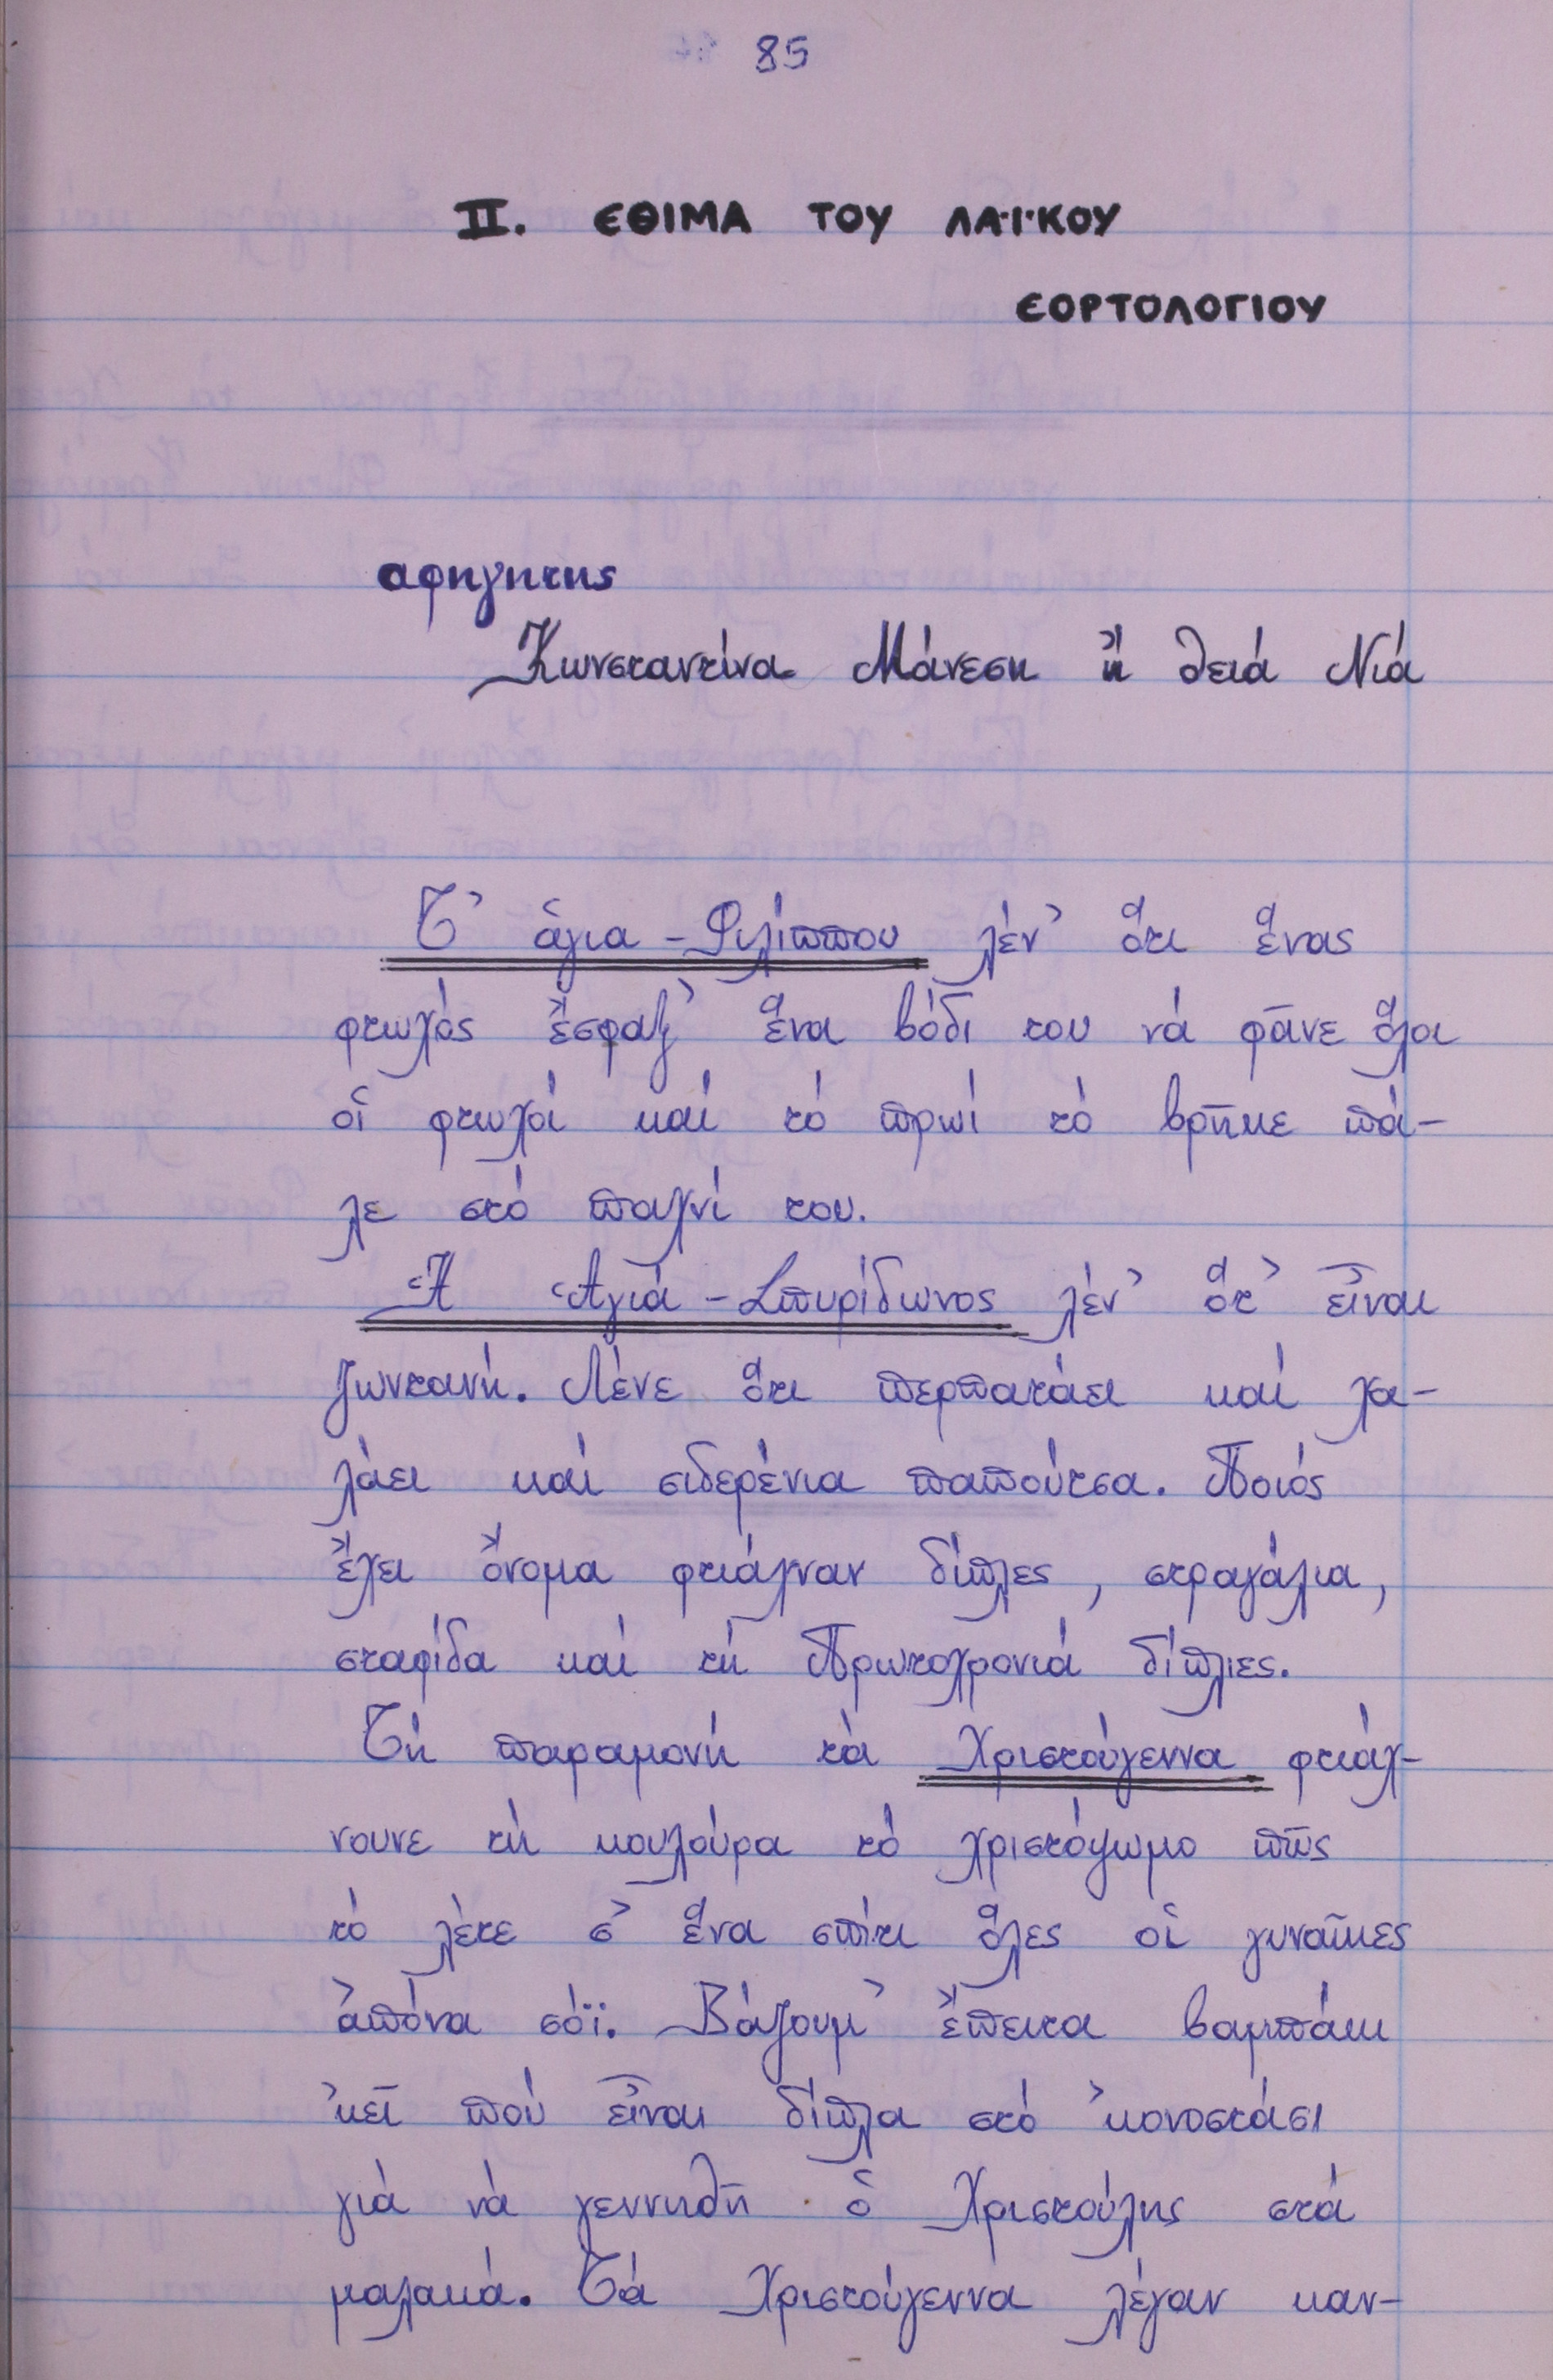 85
II. ΕΘΙΜΑ ΤΟΥ ΛΑΪΚΟΥ
ΕΟΡΤΟΛΟΓΙΟΥ
αφηγητης
Κωνσταντίνα Μάνεση ἤ θειά Νιά
Τ' ἁγια-Φιλίππου λέν' ὅτι ἕνας
φτωχός ἔσφαξ' ἕνα βόδι του νά φᾶνε ὅλοι
οἱ φτωχοί καί τό πρωί τό βρῆκε πά-
λε στό παχνί του.
Ἡ Ἁγιά-Σπυρίδωνος λέν' ὅτ' εἶναι
ζωντανή. Λένε ὅτι περπατάει καί χα-
λάει καί σιδερένια παπούτσα. Ποιός
ἔχει ὄνομα φτιάχναν δίπλες, στραγάλια,
σταφίδα καί τή Πρωτοχρονιά δίπλιες.
Τή παραμονή τά Χριστούγεννα φτιάχ-
νουνε τή κουλούρα τό χριστόψωμο πῶς
τό λέτε σ' ἕνα σπίτι ὅλες οἱ γυναῖκες
ἀπόνα σόϊ. Βάζουμ' ἔπειτα βαμπάκι
'κεῖ πού εἶναι δίπλα στό 'κονοστάσι
γιά νά γεννηθῆ ὁ Χριστούλης στά
μαλακά. Τά Χριστούγεννα λέγαν καν-